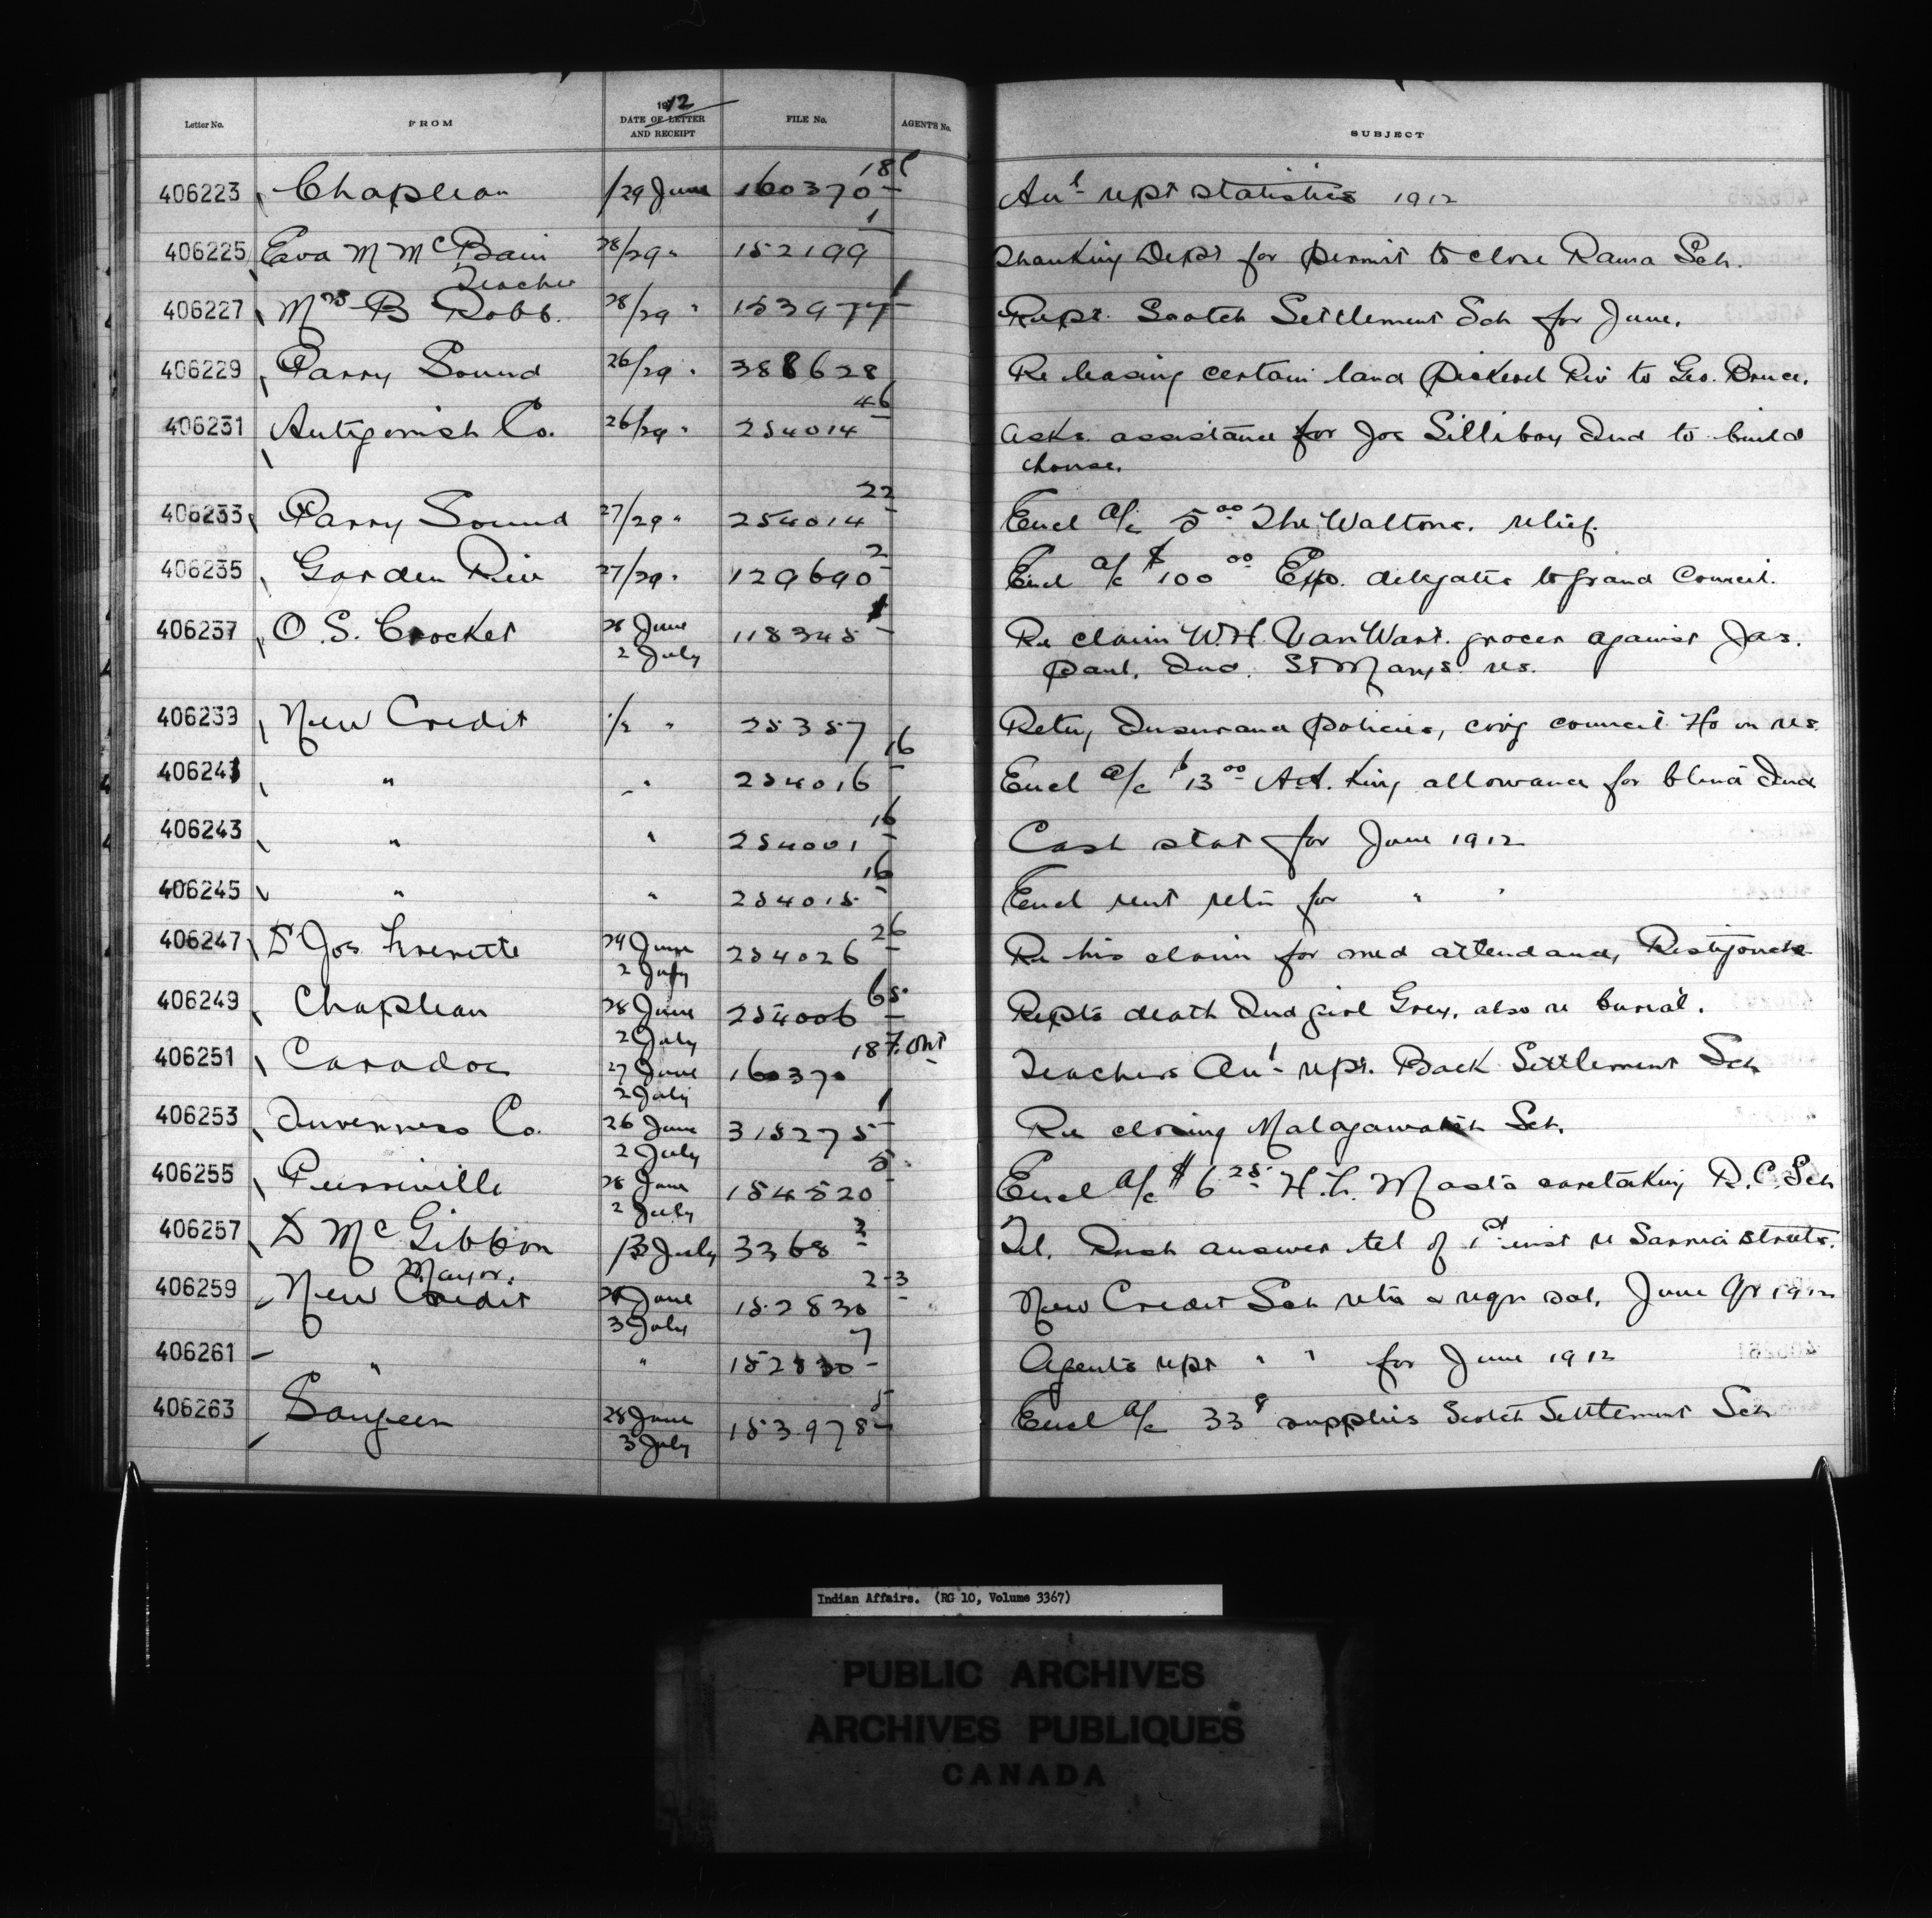 Letter No. FROM 1912 DATE OF LETTER AND RECEIPT FILE No. AGENTS No. SUBJECT
406223 Chapleau /29 June 160370 18 Anl rept statistics 1912
406225 Eva M McBain Teacher 28/29 " 152199 1 Thanking Dept for permit to close Rama Sch.
406227 Mrs B Robb. 28/29 " 153977 1 Rept. Scotch Settlement Sch for June.
406229 Parry Sound 26/29 " 388628 Re leasing certain land Pickerel Riv to Geo. Bruce.
406231 Antigonish Co. 26/29 " 254014 46 Asks. assistance for Joe Silliboy Ind to build
house.
406233 Parry Sound 27/29 " 254014 22 Encl a/c 5 00 The Waltons. relief.
406235 Garden Riv 27/29 " 129690 2 Encl a/c $100 00 Exp. delegates to grand Council.
406237 O. S. Crocket 28 June 2 July 118345 1 Re claim W.H. VanWart. grocer against Jas.
Paul, Ind. St Marys res.
406239 New Credit 1/2 " 25357 Retg Insurance policies, covg council Ho on res.
406241 " " 254016 16 Encl a/c $13 00 A.A. King allowance for blind Ind
406243 " " 254001 16 Cash stat for June 1912
406245 " " 254015 16 Encl rent retn for " "
406247 Dr Jos 29 June 2 July 254026 26 Re his claim for med attendance, Restigouche
406249 Chapleau 28 June 2 July 254006 65 Repts death Ind girl Grey, also re burial.
406251 Caradoc 27 June 2 July 160370 187. Ont Teachers Anl rept. Back Settlement Sch
406253 Inverness Co. 26 June 2 July 315275 1 Re closing Malagawatch Sch.
406255 Pierreville 28 June 2 July 154520 5 Encl a/c $6 25 H.L. Masta caretaking R.C. Sch
406257 D McGibbon Mayor. /3 July 3368 3 Tel. Rush answer tel of 1st inst re Sarnia streets.
406259 New Credit June 3 July 152830 2-3 New Credit Sch retn & reqn sal. June Qr 1912
406261 " " 152830 7 Agents rept " " for June 1912
406263 Saugeen 28 June 3 July 153978 5 Encl a/c 33 8 supplies Scotch Settlement Sch
Indian Affairs. (RG 10, Volume 3367)
PUBLIC ARCHIVES
ARCHIVES PUBLIQUES
CANADA